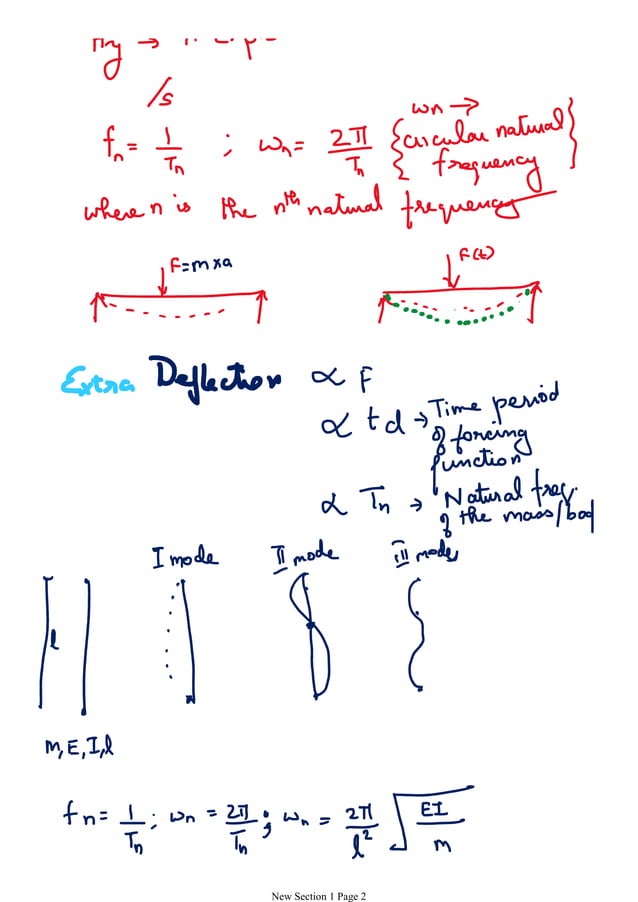 /s
fn = 1/Tn ; ωn = 2π/Tn {ωn → circular natural frequency}
where n is the nth natural frequency
F = m × a
F(t)
Extra Deflection ∝ F
∝ td → Time period of forcing function
∝ Tn → Natural freq. of the mass/bod
I mode
II mode
III modes
l
m, E, I, l
fn = 1/Tn ; ωn = 2π/Tn ; ωn = 2π/l² √(EI/m)
New Section 1 Page 2